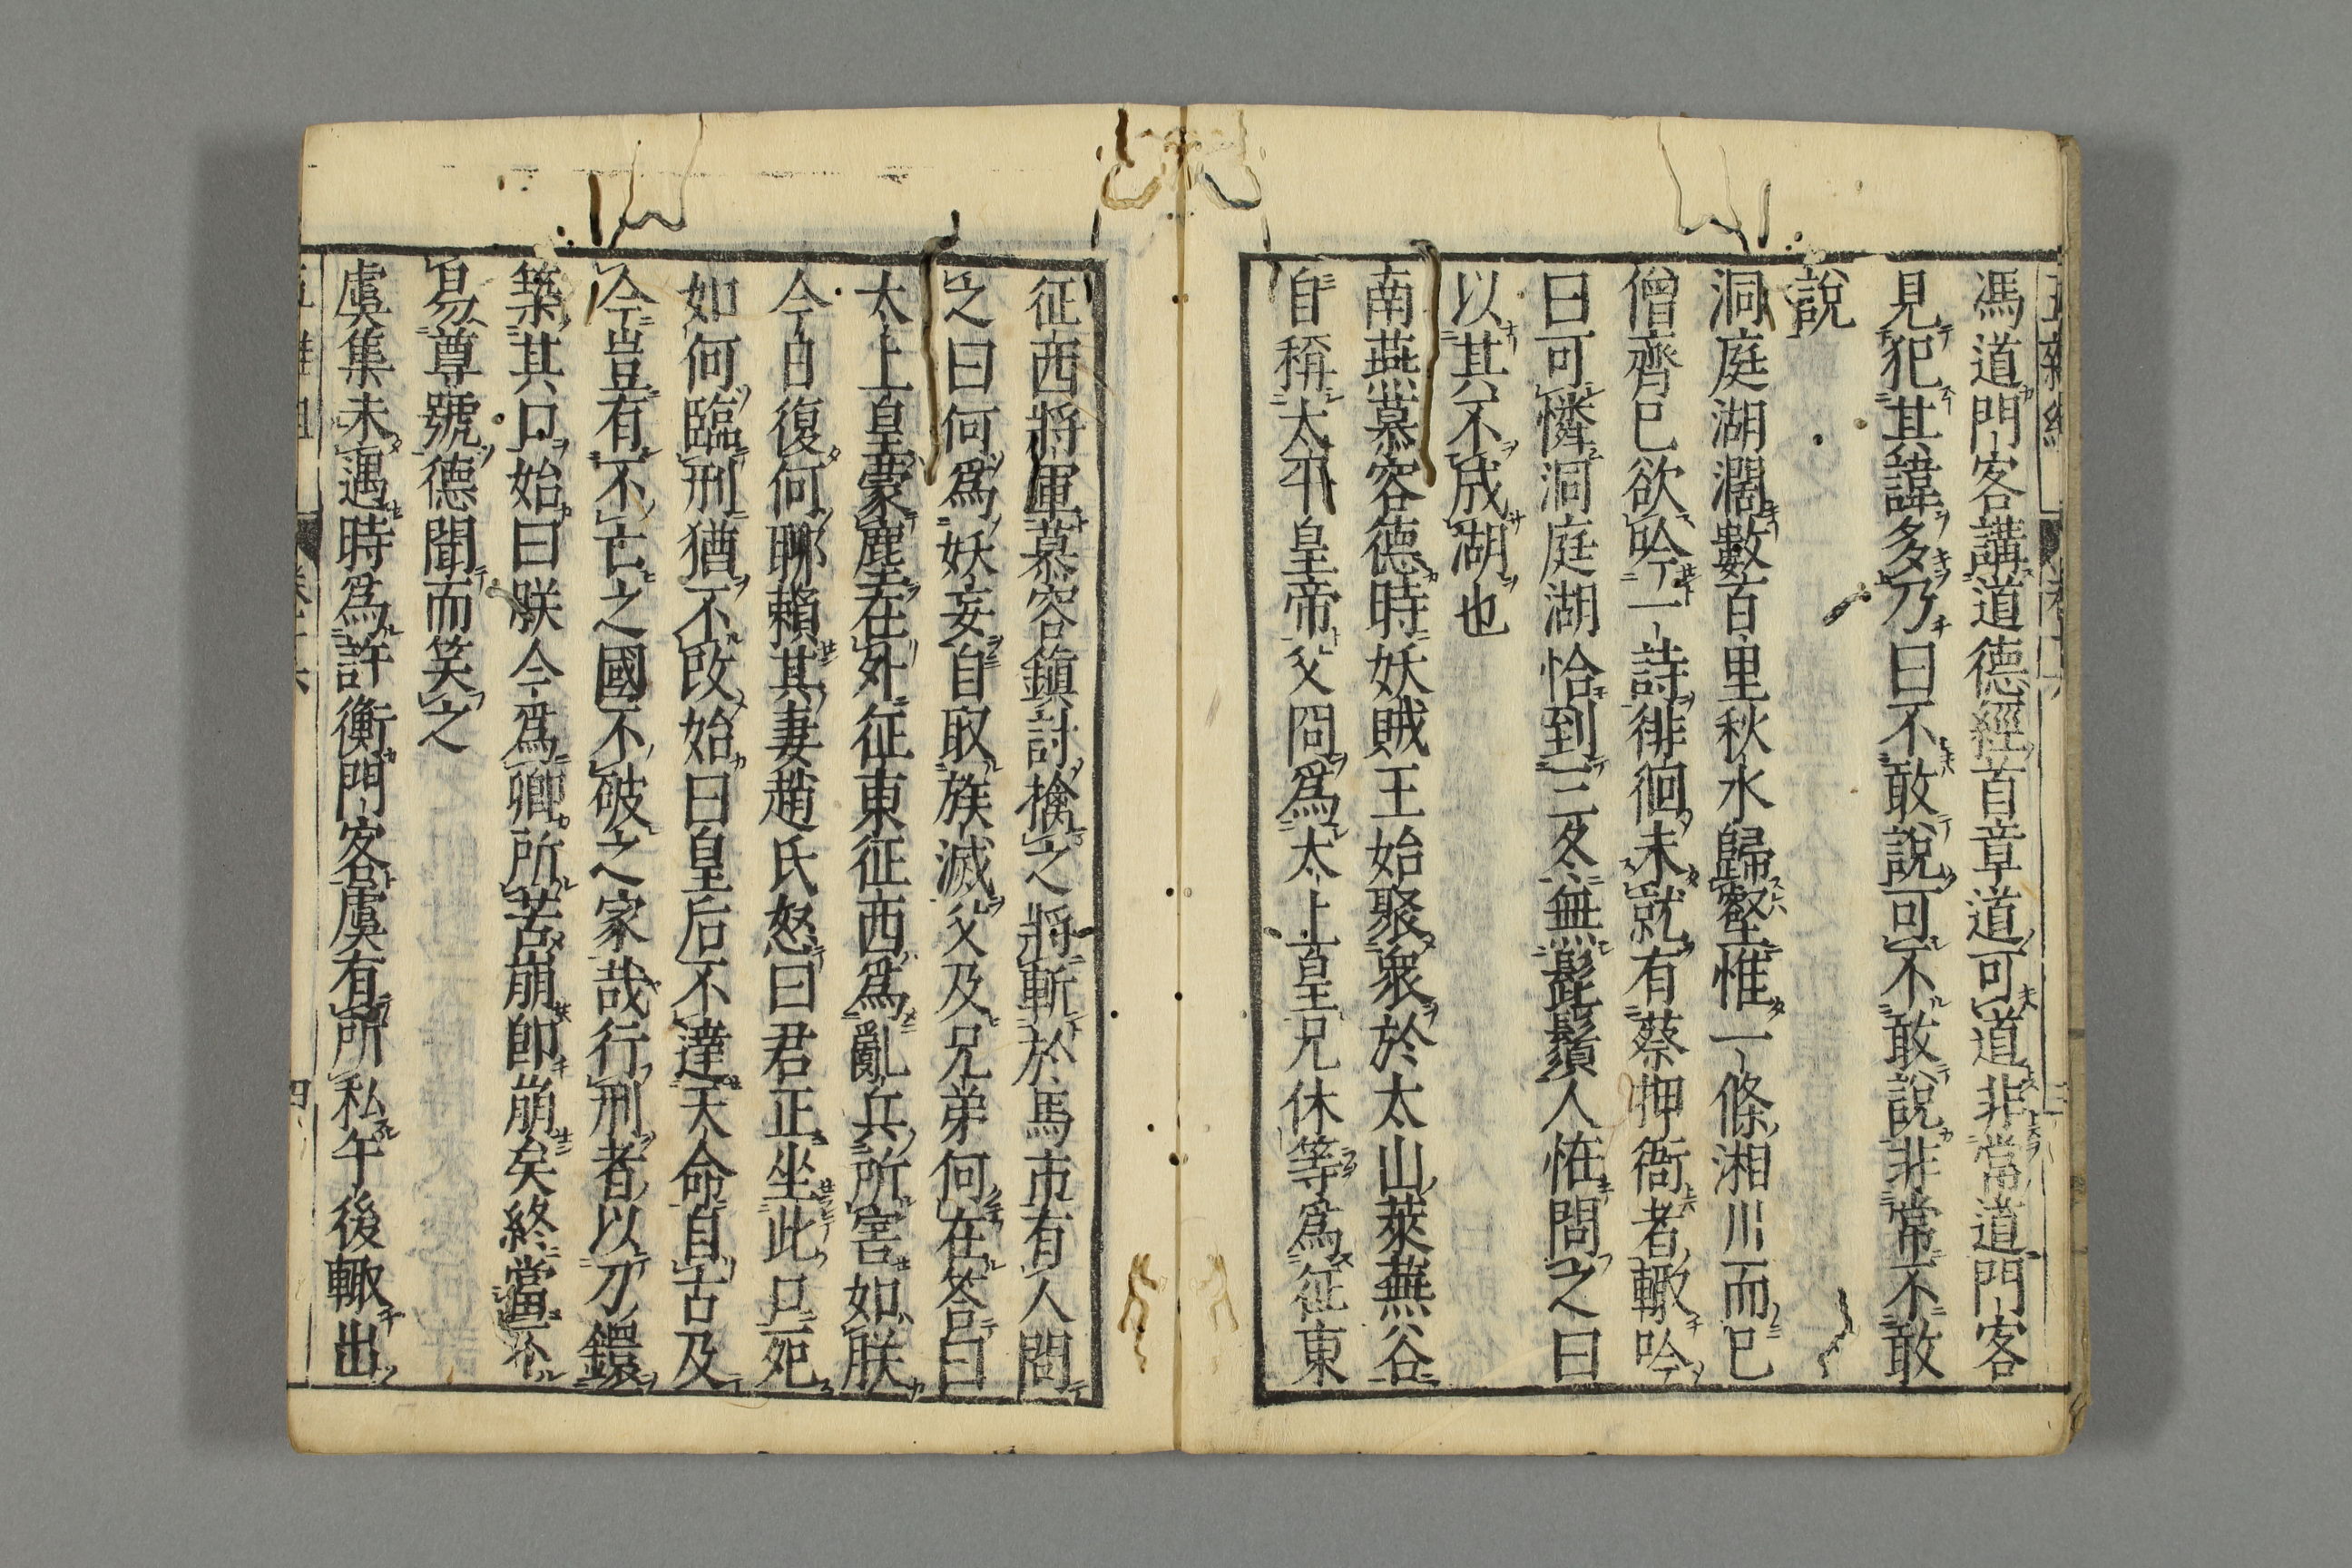 馮道門客講道德經首章道可道非常道門客
見犯其諱多乃曰不敢說可不敢說非常不敢
說
洞庭湖濶數百里秋水歸壑惟一條湘川而已
僧齊已欲吟一詩徘徊未就有蔡押衙者輙吟
曰可憐洞庭湖恰到三冬無髭鬚人怪問之曰
以其不成湖也
南燕慕容德時妖賊王始聚衆於太山萊蕪谷
自稱太平皇帝父固爲太上皇兄休等爲征東
征西將軍慕容鎮討擒之將斬於馬市有人問
之曰何爲妖妄自取族滅父及兄弟何在答曰
太上皇蒙塵在外征東征西爲亂兵所害如朕
今日復何聊賴其妻趙氏怒曰君正坐此口死
如何臨刑猶不改始曰皇后不達天命自古及
今豈有不亡之國不破之家哉行刑者以刀鐶
築其口始曰朕今爲卿所苦崩即崩矣終當不
易尊號德聞而笑之
虞集未遇時爲許衡門客虞有所私午後輙出